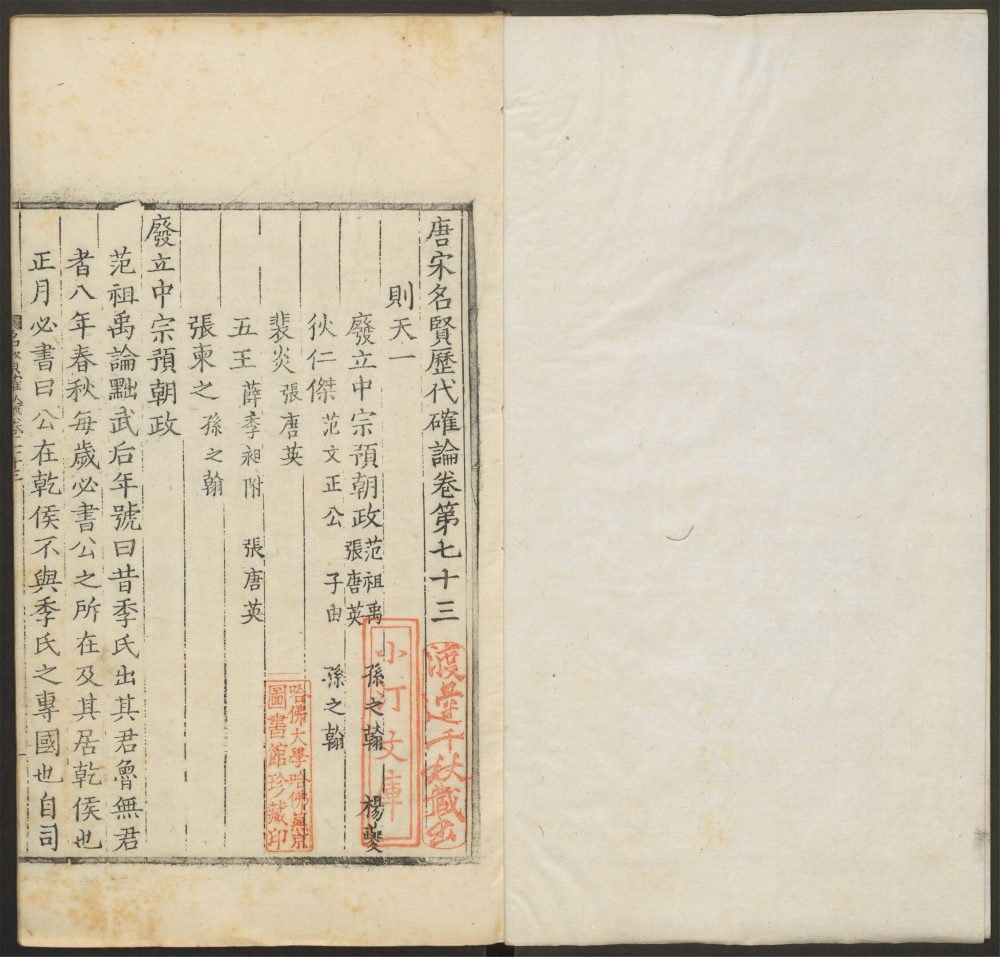 唐宋名賢歷代確論卷第七十三
則天一
廢立中宗預朝政 范祖禹 張唐英 孫之翰 楊夔
狄仁傑 范文正公 子由 孫之翰
裴炎 張唐英
五王 薛季昶附 張唐英
張柬之 孫之翰
廢立中宗預朝政
范祖禹論黜武后年號曰昔季氏出其君魯無君
者八年春秋每歲必書公之所在及其居乾侯也
正月必書曰公在乾侯不與季氏之專國也自司
渡邊千秋藏書
小汀文庫
哈佛大學哈佛燕京
圖書館珍藏印